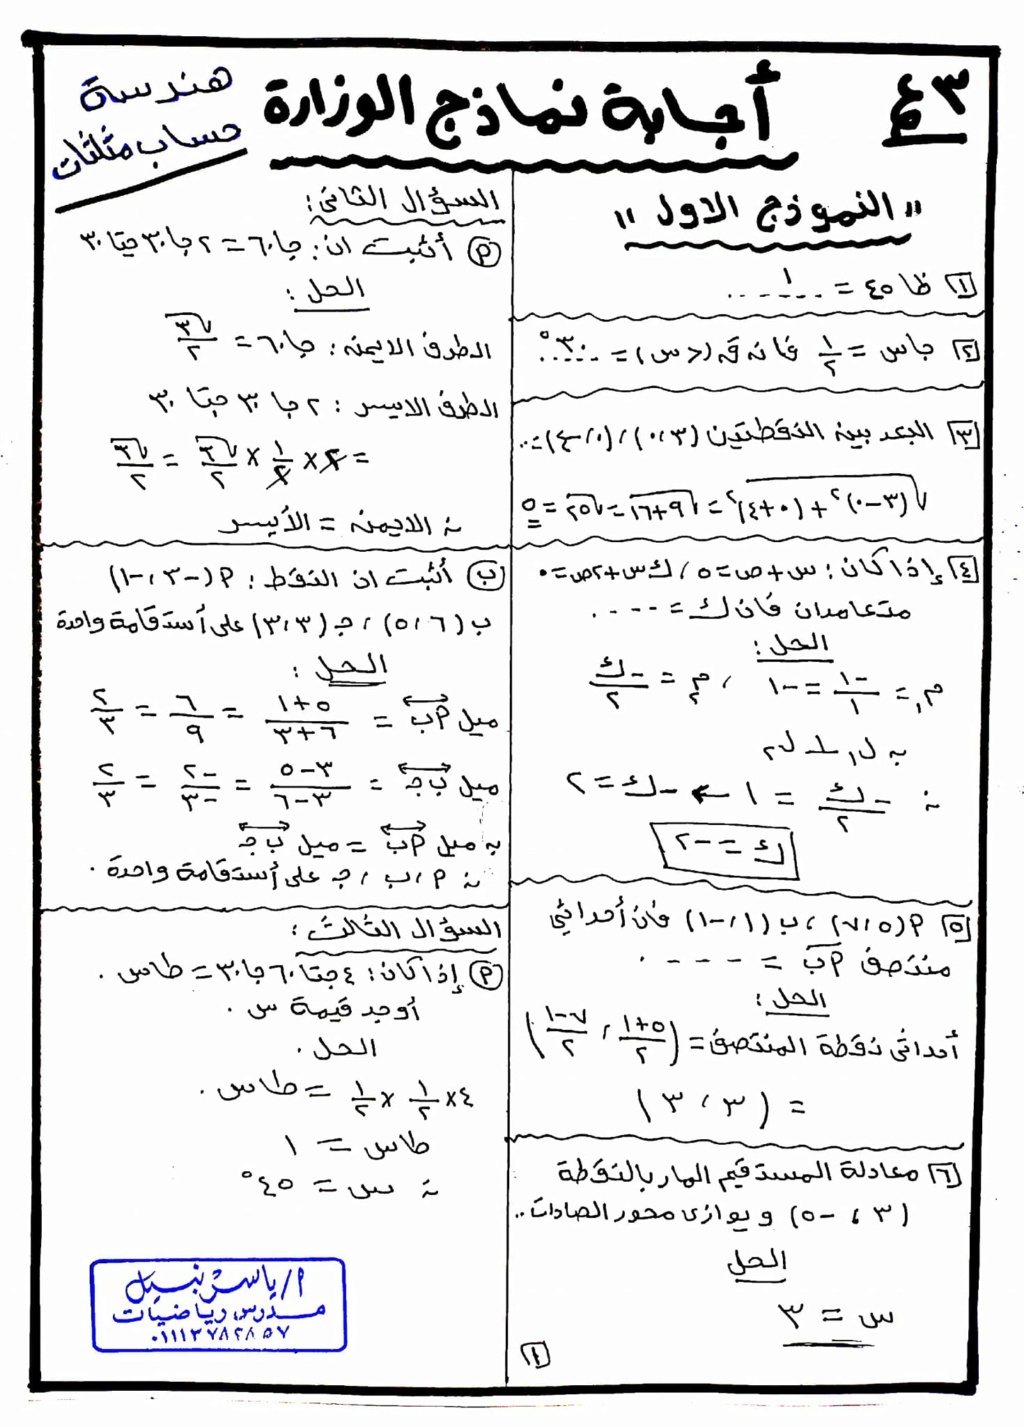 ٣ع
أجابة نماذج الوزارة
هندسة
حساب مثلثات
"النموذج الاول"
١ ظا ٤٥ = ...١...
٢ جاس = ١/٢ فانه قه (> س) = ...٣٠°...
٣ البعد بينه النقطتين (٣، ٠)، (٠، -٤) = ..
√((٣-٠)² + (٠+٤)²) = √(٩+١٦) = √٢٥ = ٥
٤ إذا كان: س + ص = ٥، ك س + ٢ص = ٠
متعامدان فان ك = ----.
الحل:
م١ = -١/١ = -١ ، م٢ = -ك/٢
∵ ل١ ⊥ ل٢
∴ -ك/٢ = ١ ← -ك = ٢
ك = -٢
٥ م (٥، ٧)، ب (١، -١) فان أحداثي
منتصف م ب = ----.
الحل:
أحداثى نقطة المنتصف = (٥+١/٢ ، ٧-١/٢)
= (٣ ، ٣)
٦ معادلة المستقيم المار بالنقطة
(٣، -٥) ويوازى محور الصادات..
الحل
س = ٣
السؤال الثانى:
م أثبت ان: جا ٦٠ = ٢ جا ٣٠ جتا ٣٠
الحل:
الطرف الايمنه: جا ٦٠ = √٣/٢
الطرف الايسر: ٢ جا ٣٠ جتا ٣٠
= ٢ × ١/٢ × √٣/٢ = √٣/٢
∴ الايمنه = الأيسر
ب أثبت ان النقط: م (-٣، -١)
ب (٦، ٥)، جـ (٣، ٣) على أستقامة واحدة
الحل:
ميل م ب = ٥+١/٦+٣ = ٦/٩ = ٢/٣
ميل ب جـ = ٣-٥/٣-٦ = -٢/-٣ = ٢/٣
∵ ميل م ب = ميل ب جـ
∴ م، ب، جـ على أستقامة واحدة.
السؤال الثالث:
م إذا كان: ٤ جتا ٦٠ جا ٣٠ = طاس.
أوجد قيمة س.
الحل.
٤ × ١/٢ × ١/٢ = طاس.
طاس = ١
∴ س = ٤٥°
م/ ياسر نبيل
مدرس رياضيات
٠١١١٣٧٨٢٨٥٧
١